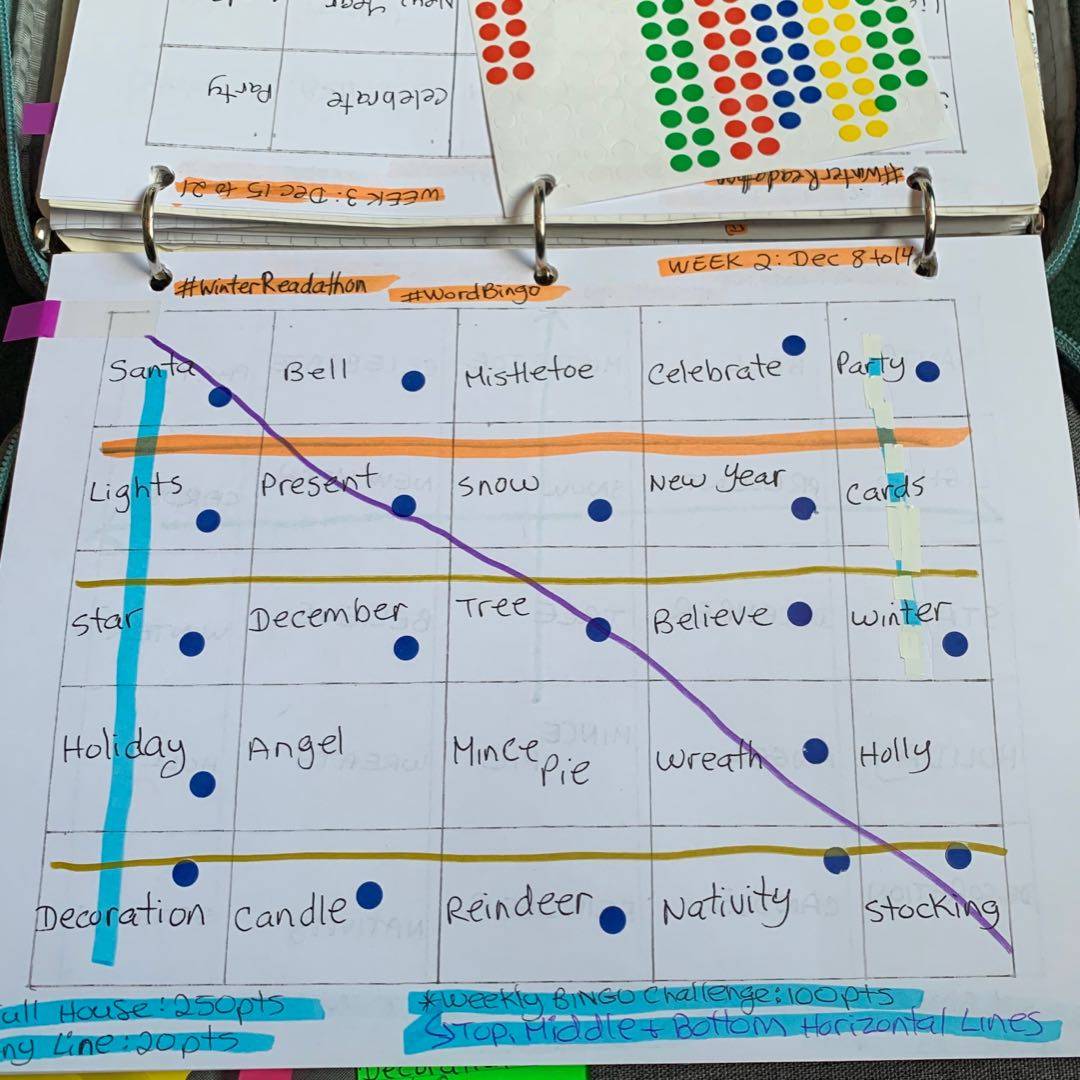 New Year
Celebrate
Party
#WinterReadathon
WEEK 3: Dec 15 to 21
#WinterReadathon
#WordBingo
WEEK 2: Dec 8 to 14
Santa
Bell
Mistletoe
Celebrate
Party
Lights
Present
Snow
New Year
Cards
Star
December
Tree
Believe
Winter
Holiday
Angel
Mince Pie
Wreath
Holly
Decoration
Candle
Reindeer
Nativity
Stocking
House: 250pts
Line: 20pts
*Weekly BINGO Challenge: 100pts
Top, Middle + Bottom Horizontal Lines